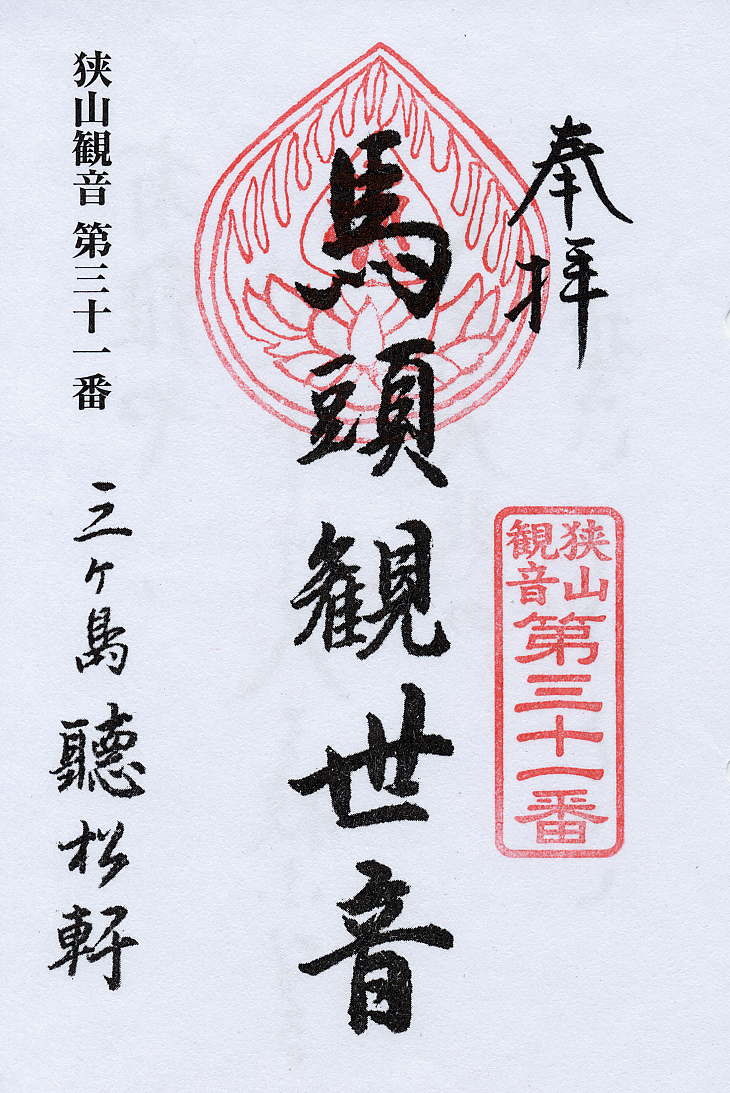 奉拝
狭山
観音
第三十一番
馬頭観世音
狭山観音 第三十一番
三ヶ島 聴松軒